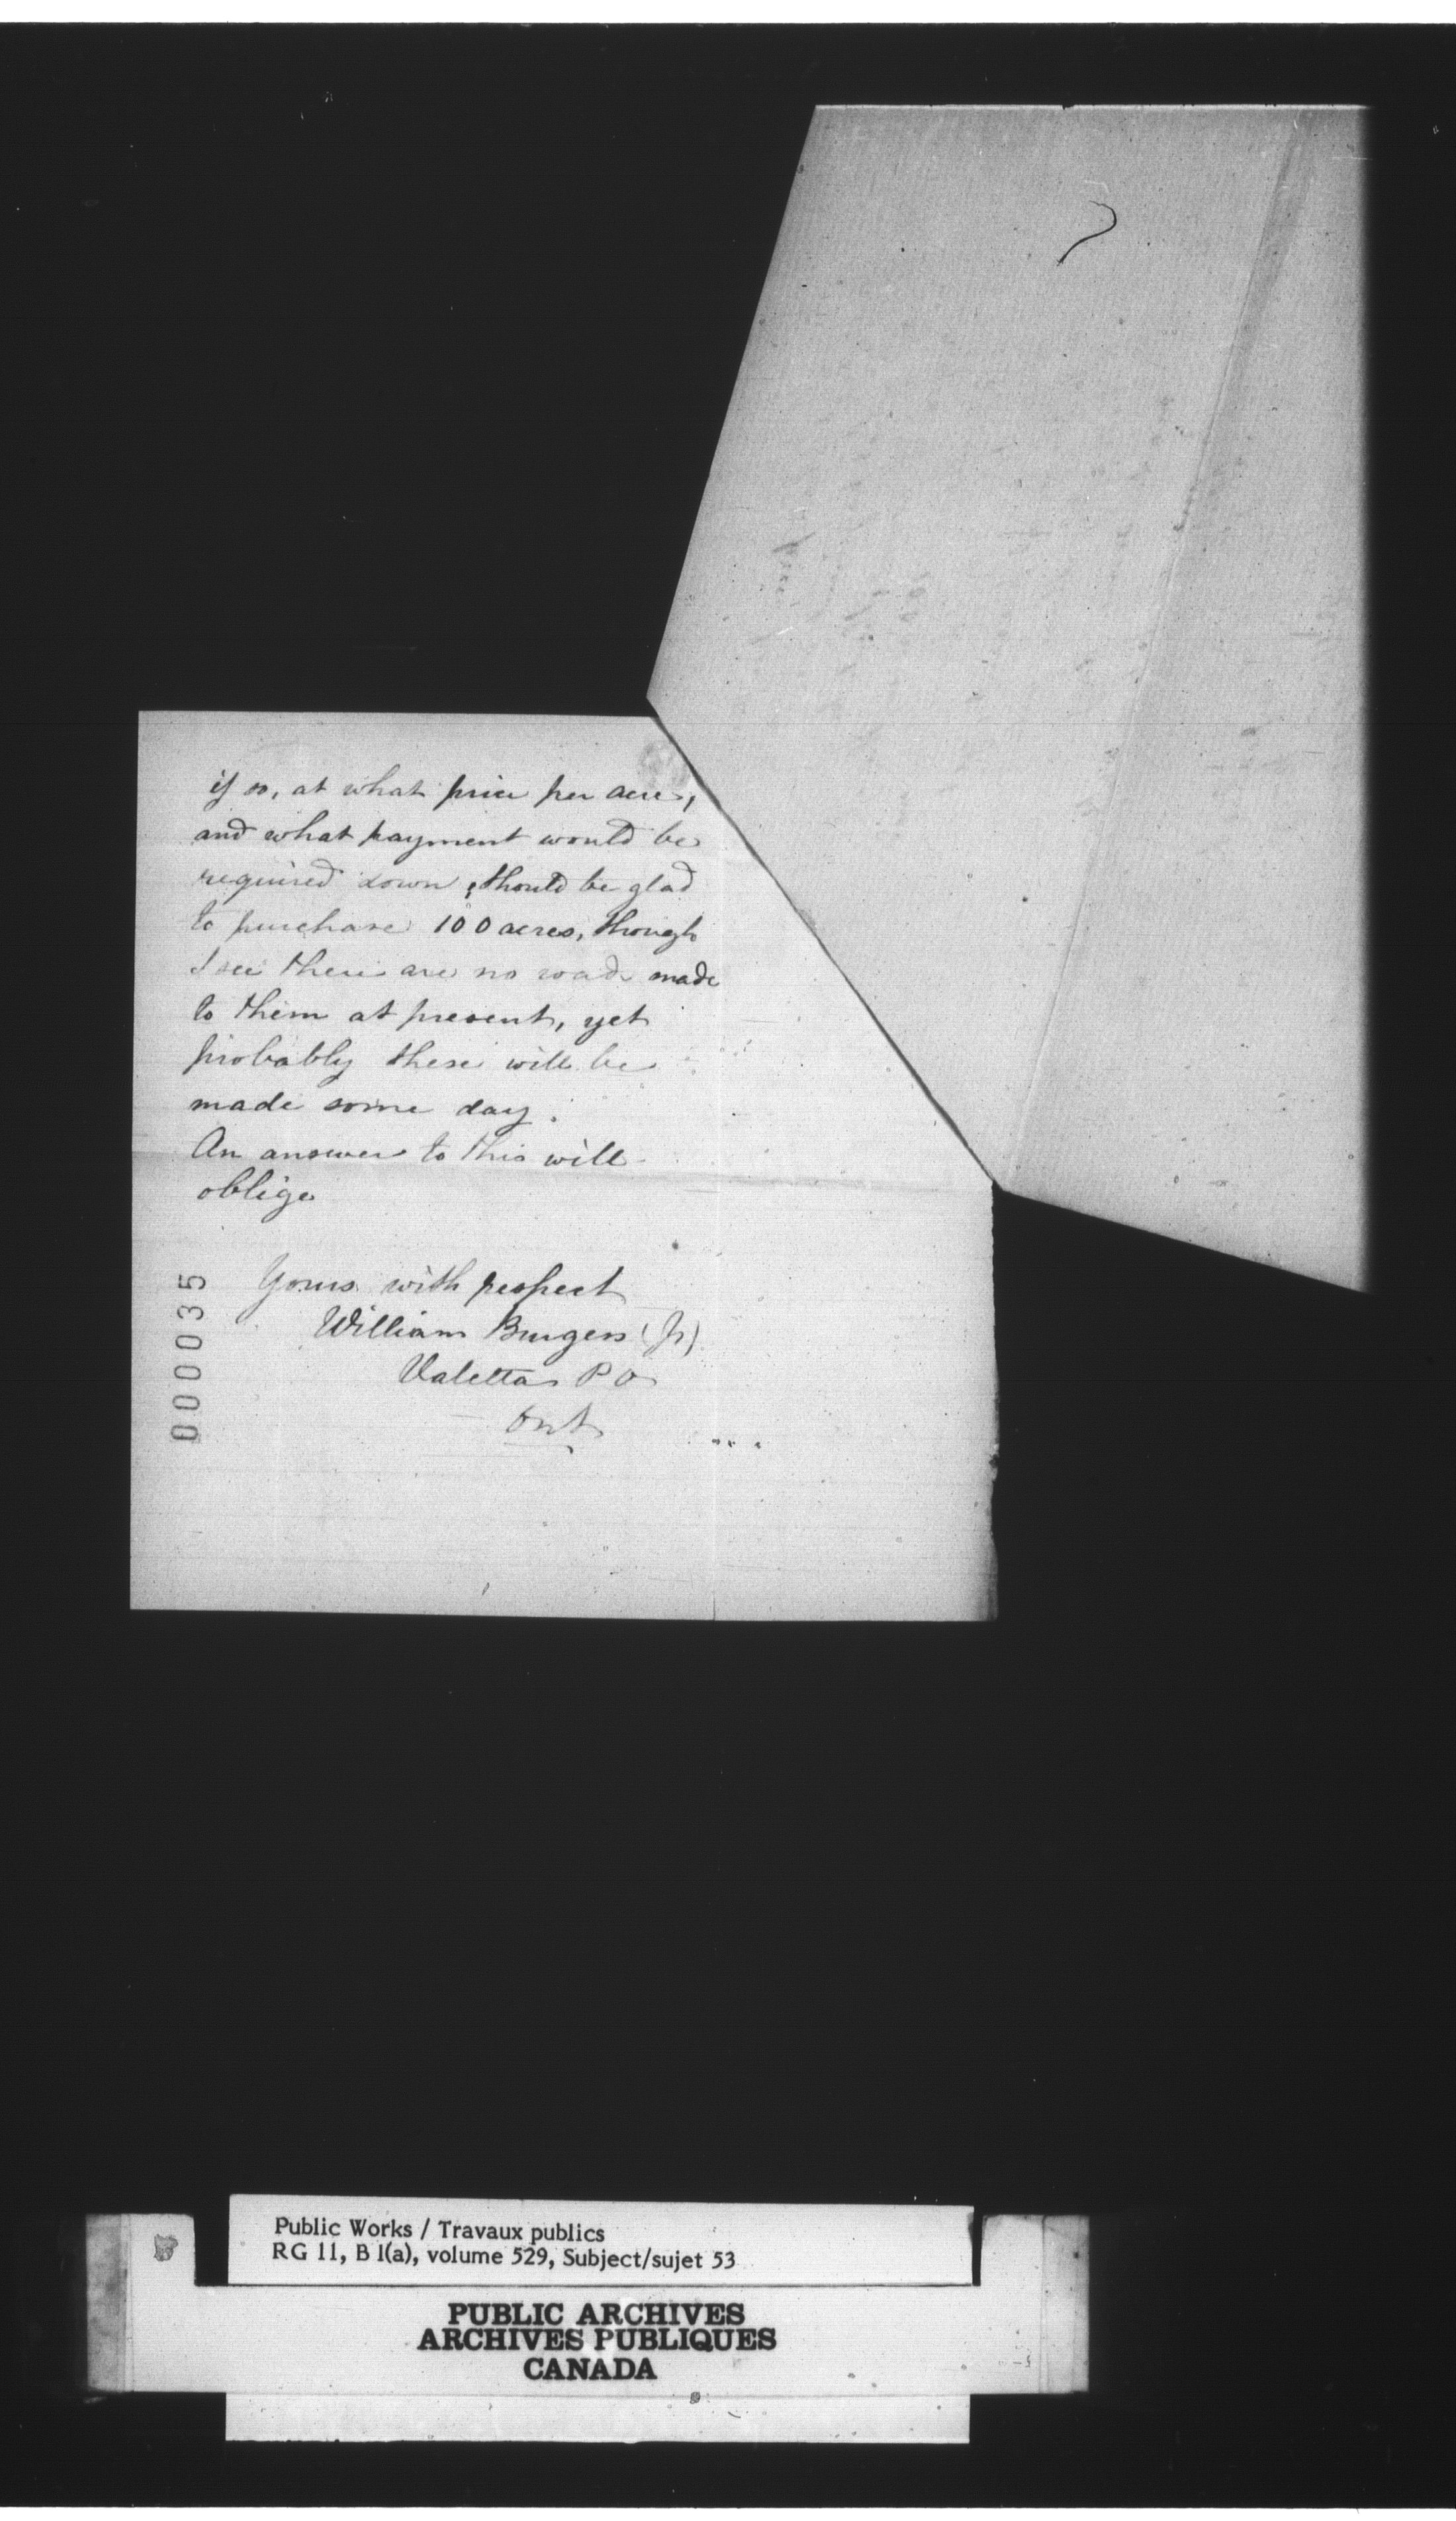 if so, at what price per acre,
and what payment would be
required down, should be glad
to purchase 100 acres, though
I see there are no roads made
to them at present, yet
probably these will be
made some day.
An answer to this will
oblige
Yours with respect
William Burgess (Jr)
Valetta P O
Ont
000035
Public Works / Travaux publics
RG 11, B 1(a), volume 529, Subject/sujet 53
PUBLIC ARCHIVES
ARCHIVES PUBLIQUES
CANADA